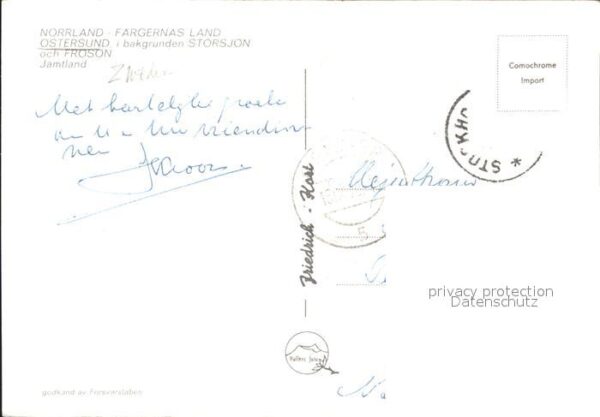 NORRLAND - FÄRGERNAS LAND
ÖSTERSUND i bakgrunden STORSJÖN
och FRÖSÖN
Jämtland
Met hartelijke groeten
van U en Uw vriendin
Comochrome
Import
STOCKHO
Friedrich - Kosl
5
privacy protection
Datenschutz
godkänd av Försvarsstaben